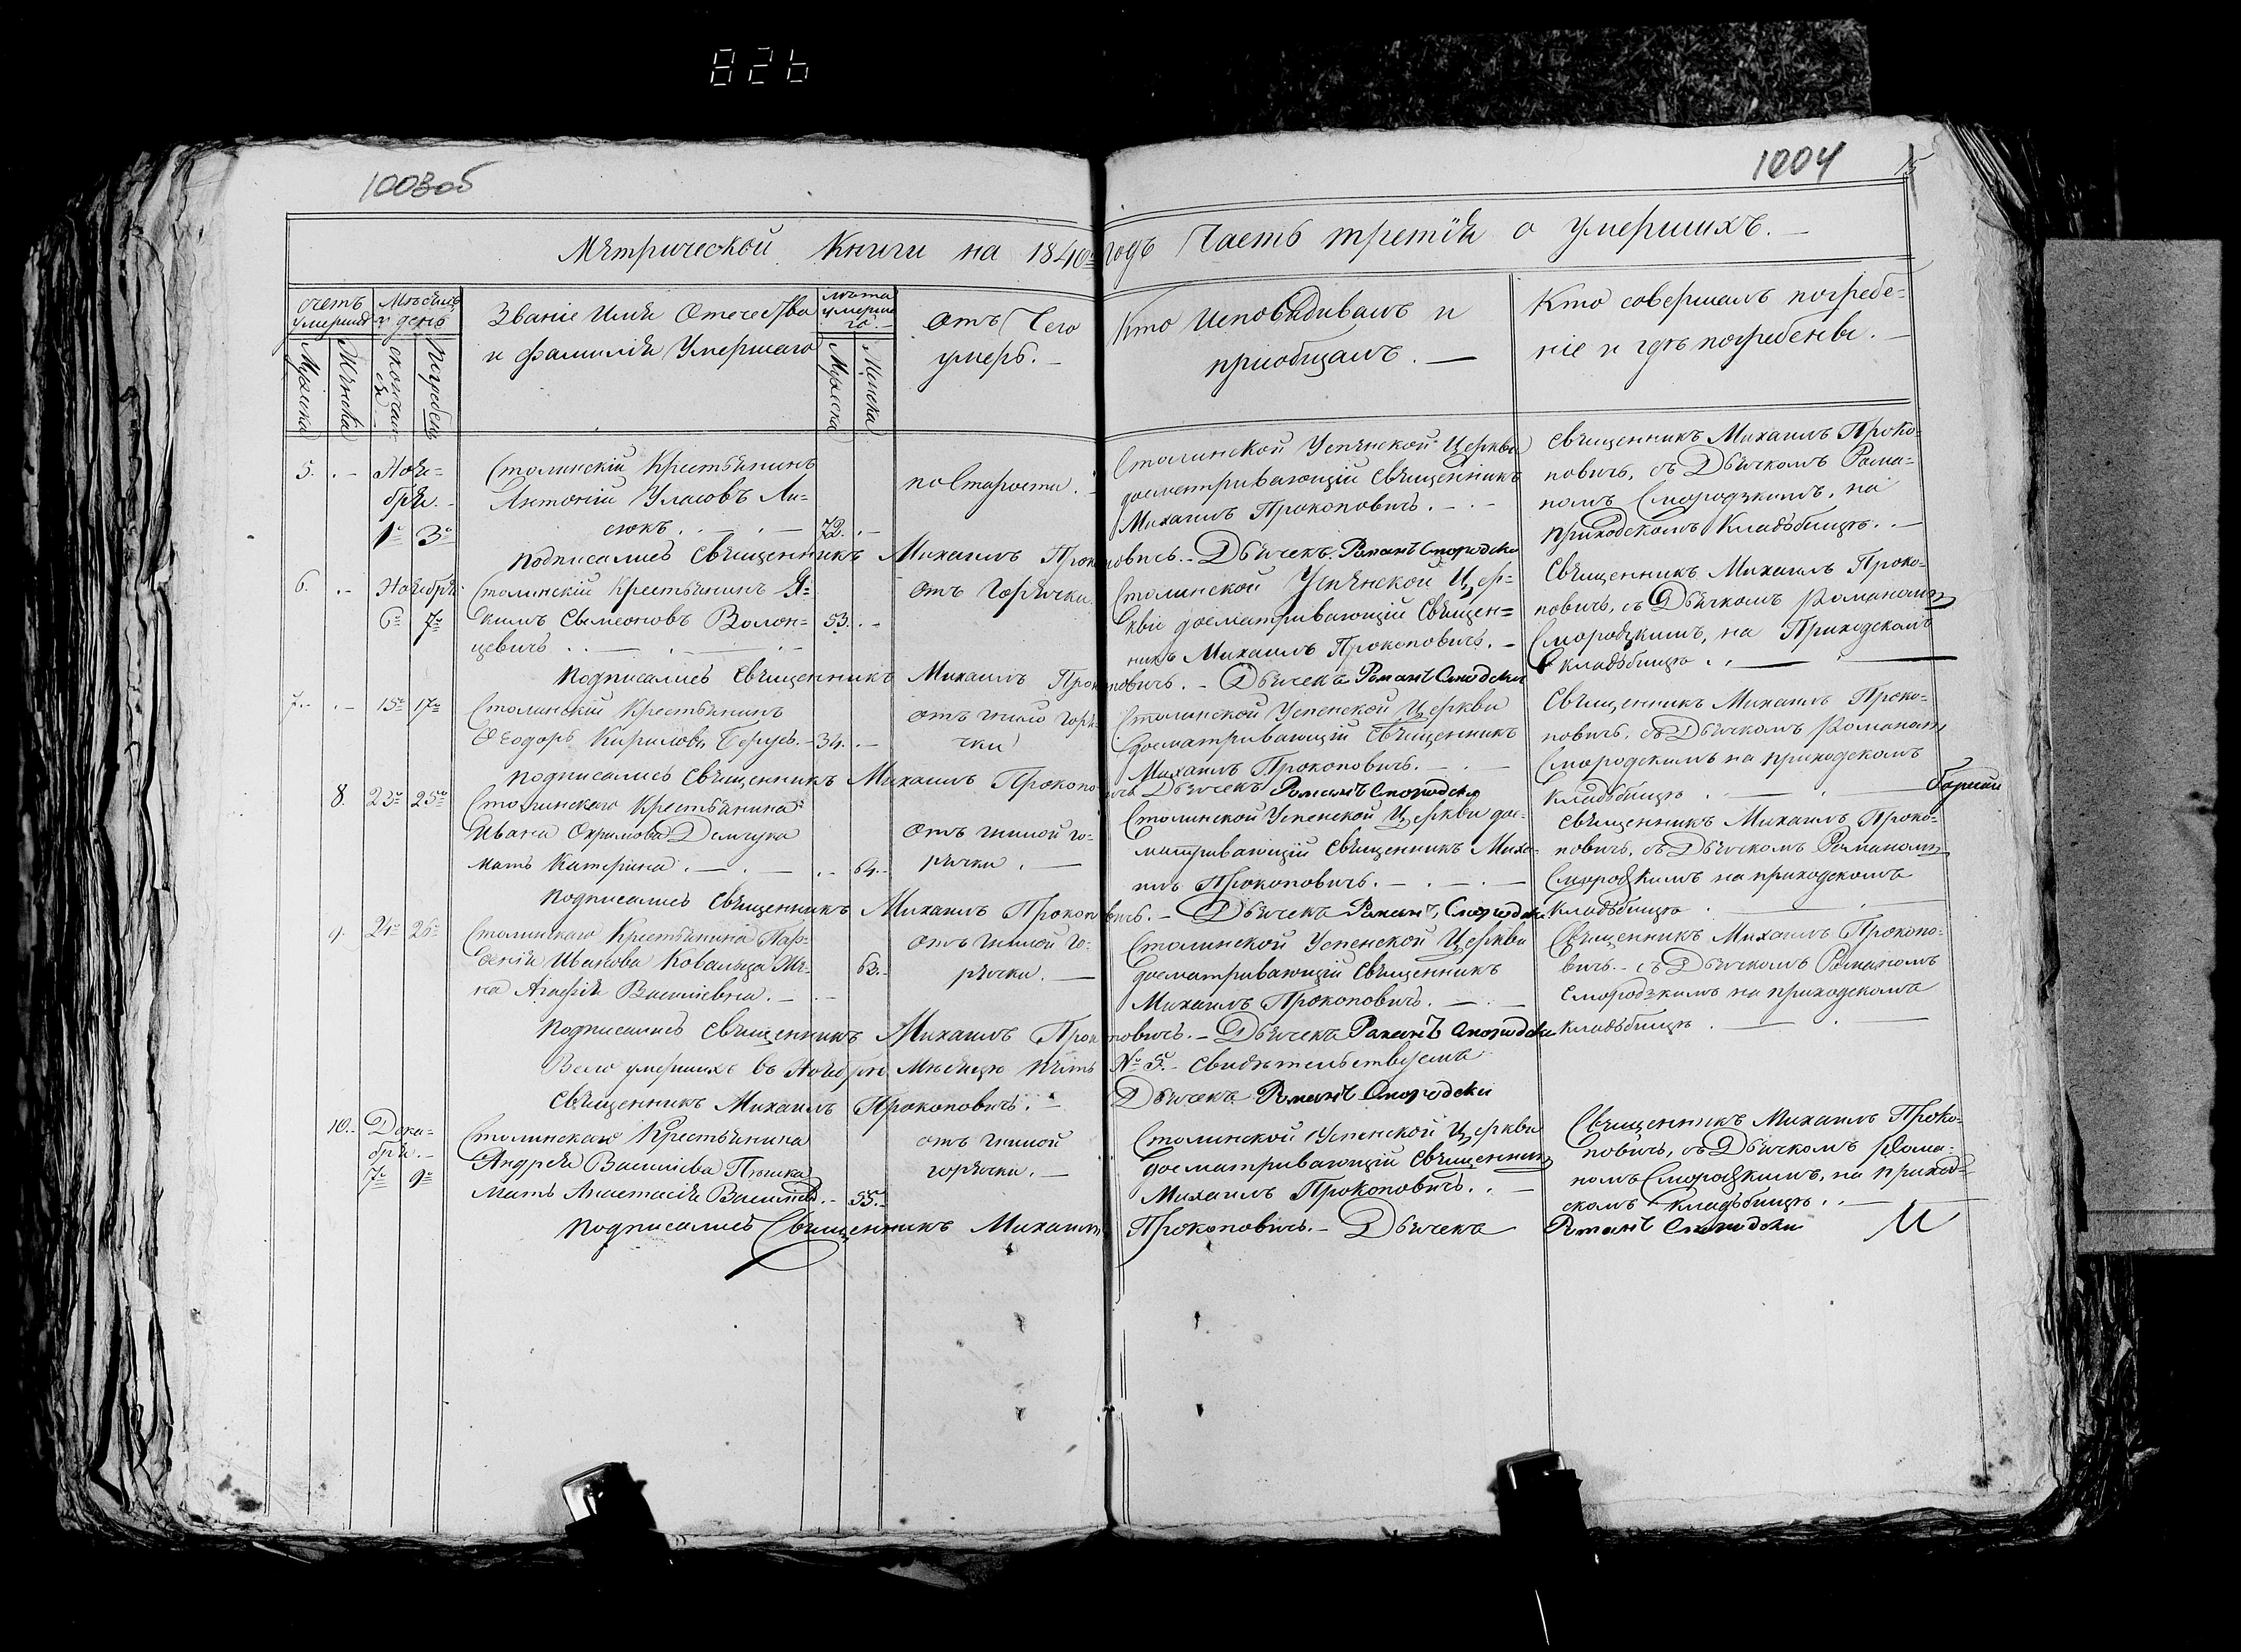 826
1003об
1004
15
Мѣтрической Книги на 1840й годъ Часть третія о умершихъ. —
счетъ умершихъ
Мужеска
Женска
Мѣсяцъ и день
скончанія
Погребенія
Званіе Имя Отечество
и фамилія Умершаго
лѣта умершаго. —
Мужеска
Женска
Отъ Чего
умеръ. —
Кто Исповѣдивалъ и
пріобщалъ. —
Кто совершалъ погребе=
ніе и гдѣ погребены. —
5. . — Ноя=
бря. —
1о 3о
Столинскій Крестьянинъ
Антоній Уласовъ Ли=
сюкъ . — . — 72. . —
по Старости. —
Столинской Успѣнской Церкви
досматривающій Священникъ
Михаилъ Прокоповичъ. — . —
Священникъ Михаилъ Проко=
повичъ, съ Дьячкомъ Рома=
номъ Смородзкимъ, на
приходскомъ Кладьбищѣ. . —
Подписались Священникъ Михаилъ Прокоповичъ. — Дьячекъ Романъ Смородски
6. . — Ноября
6о 7о
Столинскій Крестьянинъ Я=
кимъ Сѵмеоновъ Волон= 53. . —
цевичъ . . — . —
отъ Горячки.
Столинской Успѣнской Цер=
кви досматривающій Священ=
никъ Михаилъ Прокоповичъ. —
Священникъ Михаилъ Проко=
повичъ, съ Дьячкомъ Романомъ
Смородзкимъ, на Приходскомъ
Кладьбищѣ . . —
Подписались Священникъ Михаилъ Прокоповичъ. — Дьячекъ Романъ Смородски
7. — . — 15о 17о
Столинскій Крестьянинъ
Ѳеодоръ Кириловъ — 34. . —
отъ гнило горя=
чки
Столинской Успенской Церкви
досматривающій Священникъ
Михаилъ Прокоповичъ. — . —
Священникъ Михаилъ Проко=
повичъ, съ Дьячкомъ Романомъ
Смородскимъ на приходскомъ
Кладьбищѣ . — . —
Подписались Священникъ Михаилъ Прокоповичъ Дьячекъ Романъ Смородски
8. 23о 25о
Столинскаго Крестьянина
Ивана Охримова Демчука
мать Катерина . — . — . — 64. —
отъ гнилой го=
рячки . —
Столинской Успенской Церкви дос=
матривающій Священникъ Миха=
илъ Прокоповичъ. — . — . —
Священникъ Михаилъ Проко=
повичъ, съ Дьячкомъ Романомъ
Смородзкимъ на приходскомъ
Кладьбищѣ . — . —
Подписались Священникъ Михаилъ Прокоповичъ. — Дьячекъ Романъ Смородски
9. 24о 26о
Столинскаго Крестьянина Пар=
ѳенія Иванова Ковальца Же= 63. —
на Агафія Василіевна. — . —
отъ гнилой го=
рячки. —
Столинской Успенской Церкви
досматривающій Священникъ
Михаилъ Прокоповичъ. — . —
Священникъ Михаилъ Прокопо=
вичъ. — съ Дьячкомъ Романомъ
Смородзкимъ на приходскомъ
Кладьбищѣ . — . —
Подписались Священникъ Михаилъ Прокоповичъ. — Дьячекъ Романъ Смородски
Всего умершихъ въ Ноябрѣ Мѣсяцѣ пять № 5. — Свидѣтельствуемъ
Священникъ Михаилъ Прокоповичъ. — Дьячекъ Романъ Смородски
10. — Дека=
бря. —
7о 9о
Столинскаго Крестьянина
Андрея Василіева
Мать Анастасія — 55. —
отъ гнилой
горячки. —
Столинской Успенской Церкви
досматривающій Священникъ
Михаилъ Прокоповичъ. . —
Священникъ Михаилъ Проко=
повичъ, съ Дьячкомъ Рома=
номъ Смородзкимъ, на приход=
скомъ Кладьбищѣ . . —
Подписались Священникъ Михаилъ Прокоповичъ. — Дьячекъ Романъ Смородски